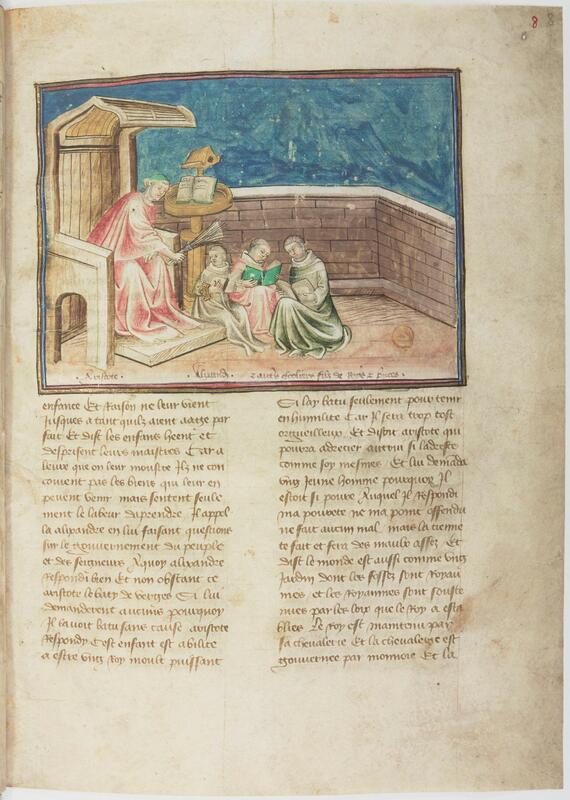 8
Aristote
Alixandre
enfance Et Raison ne leur vient
Jusques a tant quilz aient aatge par
fait Et Dist les enfans heent et
desprisent leurs maistres Car a
leure que on leur monstre Ilz ne con
coivent pas les biens qui leur en
peuent venir mais sentent seule
ment le labeur daprendre Il appel
la alixandre en lui faisant questions
sur le gouvernement du peuple
et des seigneurs A quoy alixandre
respondi bien Et non obstant ce
aristote le baty de verges Si lui
demanderent aucuns pourquoy
Il lavoit batu sans cause aristote
Respondy Cest enfant est abilite
a estre ung Roy moult puissant
Si lay batu seulement pour tenir
en humilite Car Il sera trop tost
orgueilleux Et disoit aristote qui
pourra adrecier autrui si ladresce
comme soy mesmes Et lui demanda
ung Jeune homme pourquoy Il
estoit si povre Auquel Il respondi
ma povrete ne ma point offendu
ne fait aucun mal mais la tienne
te fait et fera des maulx assez Et
dist le monde est aussi comme ung
Jardin dont les fossez sont Royau
mes et les Royaumes sont souste
nues par les loix que le Roy a esta
blies Le Roy est maintenu par
sa chevalerie Et la chevalerie est
gouvernee par monnoie Et la